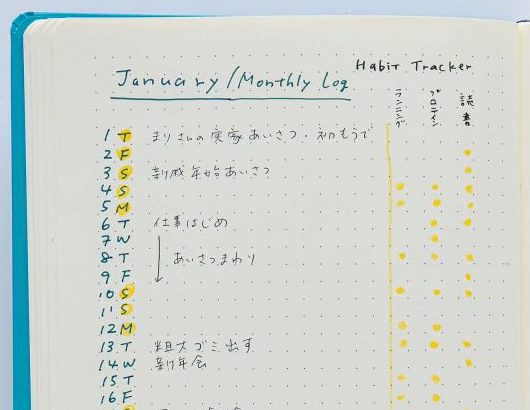 January/Monthly Log
Habit Tracker
ランニング
プロテイン
読書
1 T まりさんの実家あいさつ・初もうで
2 F
3 S 新成年始あいさつ
4 S
5 M
6 T 仕事はじめ
7 W
8 T あいさつまわり
9 F
10 S
11 S
12 M
13 T 粗大ゴミ出す
14 W 新年会
15 T
16 F